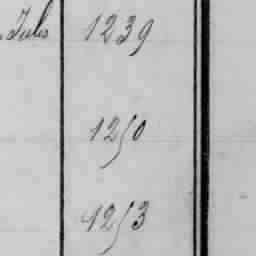 Julio 1239
1250
1253